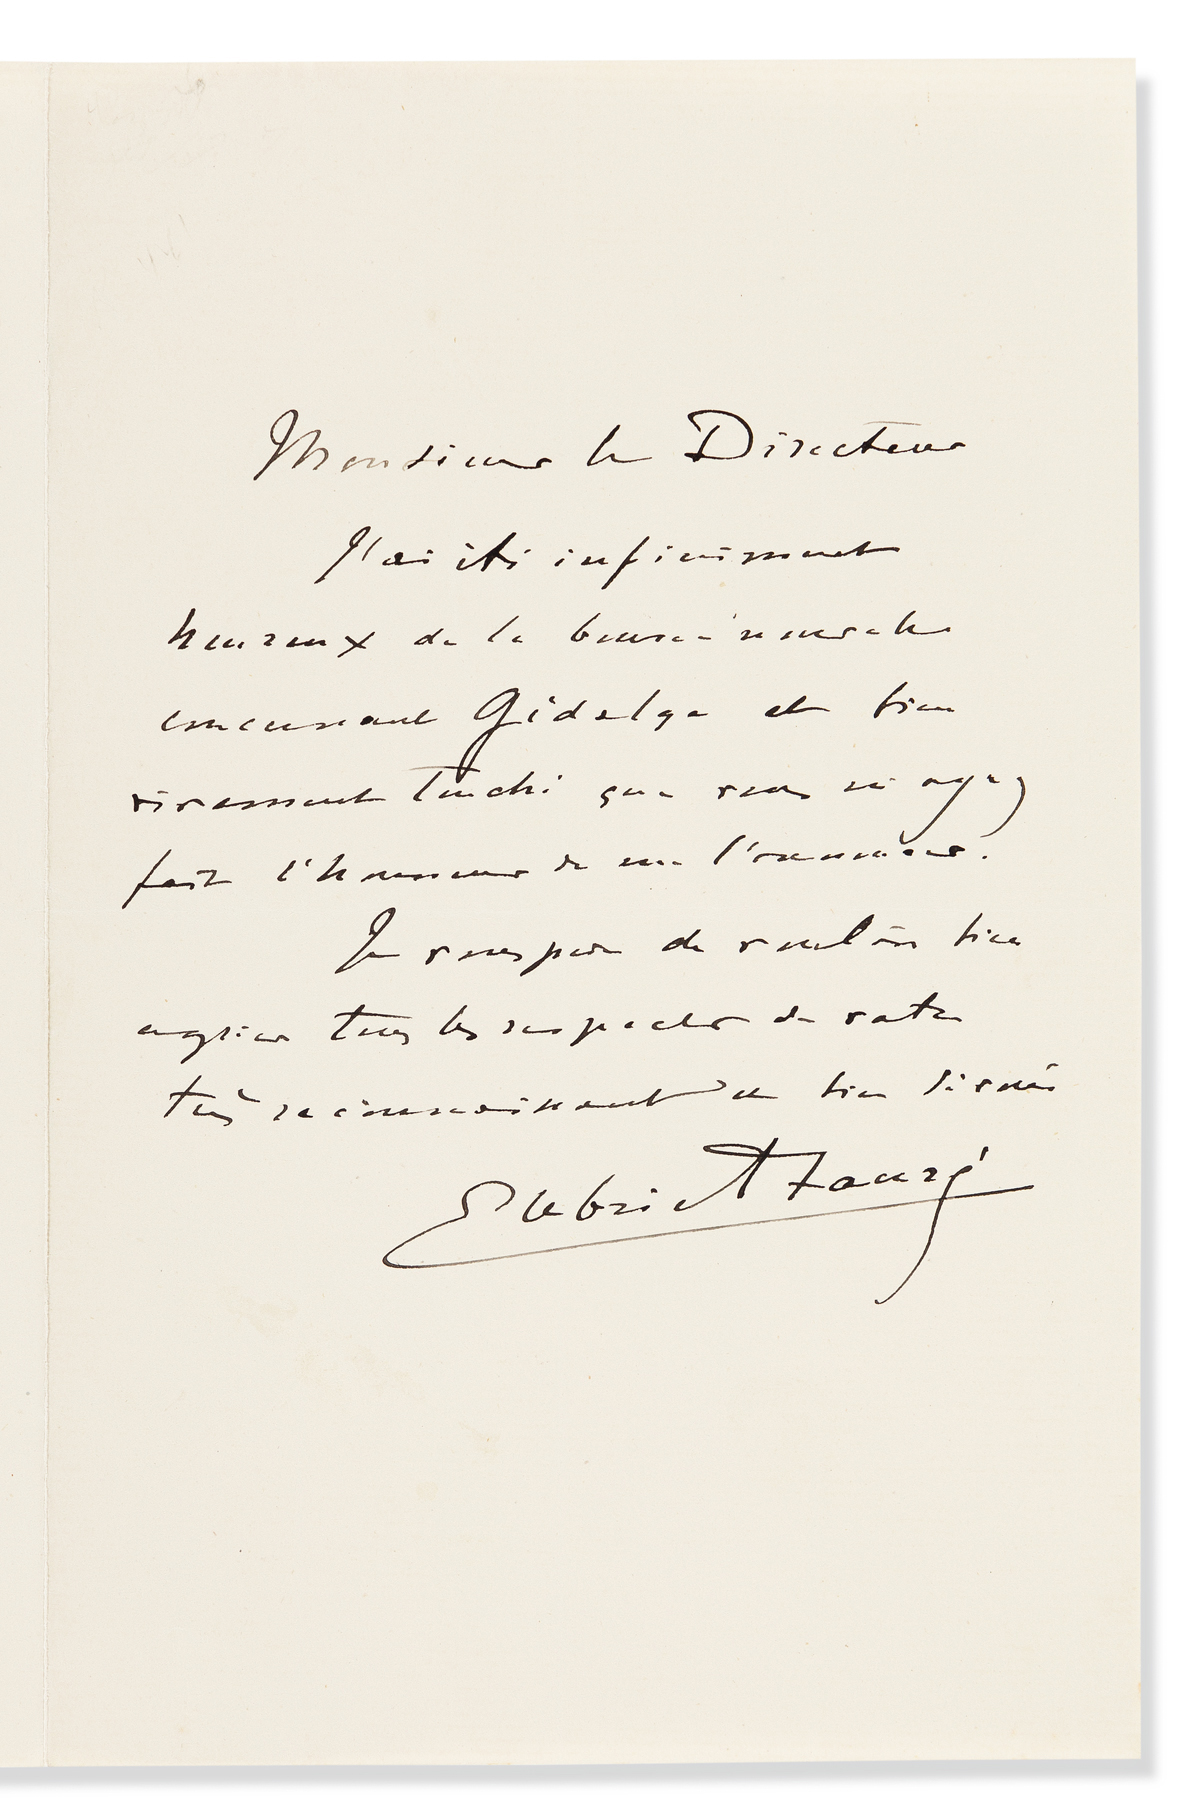 Monsieur le Directeur
J'ai été infiniment
heureux de la bonne nouvelle
concernant Gédalge et bien
vivement touché que vous m'ayez
fait l'honneur de me l'annoncer.
Je vous prie de vouloir bien
agréer tous les respects de votre
très reconnaissant et bien dévoué
Gabriel Fauré